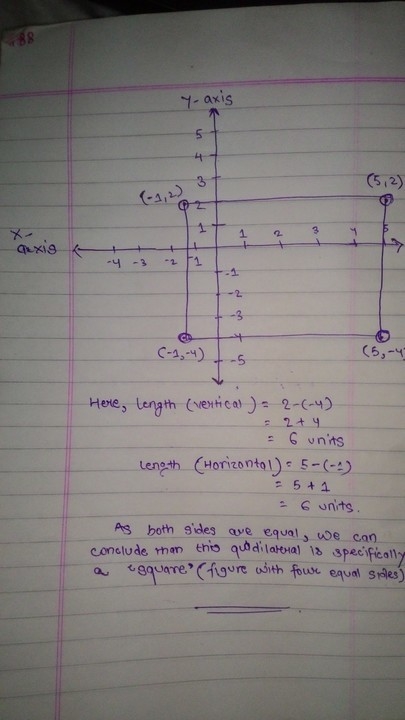 88
y-axis
5
4
3
(-1,2)
(5,2)
2
1
x-axis
-4 -3 -2 -1 1 2 3 4 5
-1
-2
-3
-4
(-1,-4)
(5,-4
-5
Here, length (vertical) = 2-(-4)
= 2+4
= 6 units
length (Horizontal) = 5-(-1)
= 5+1
= 6 units.
As both sides are equal, we can
conclude than this qudilateral is specifically
a "square" (figure with four equal sides)